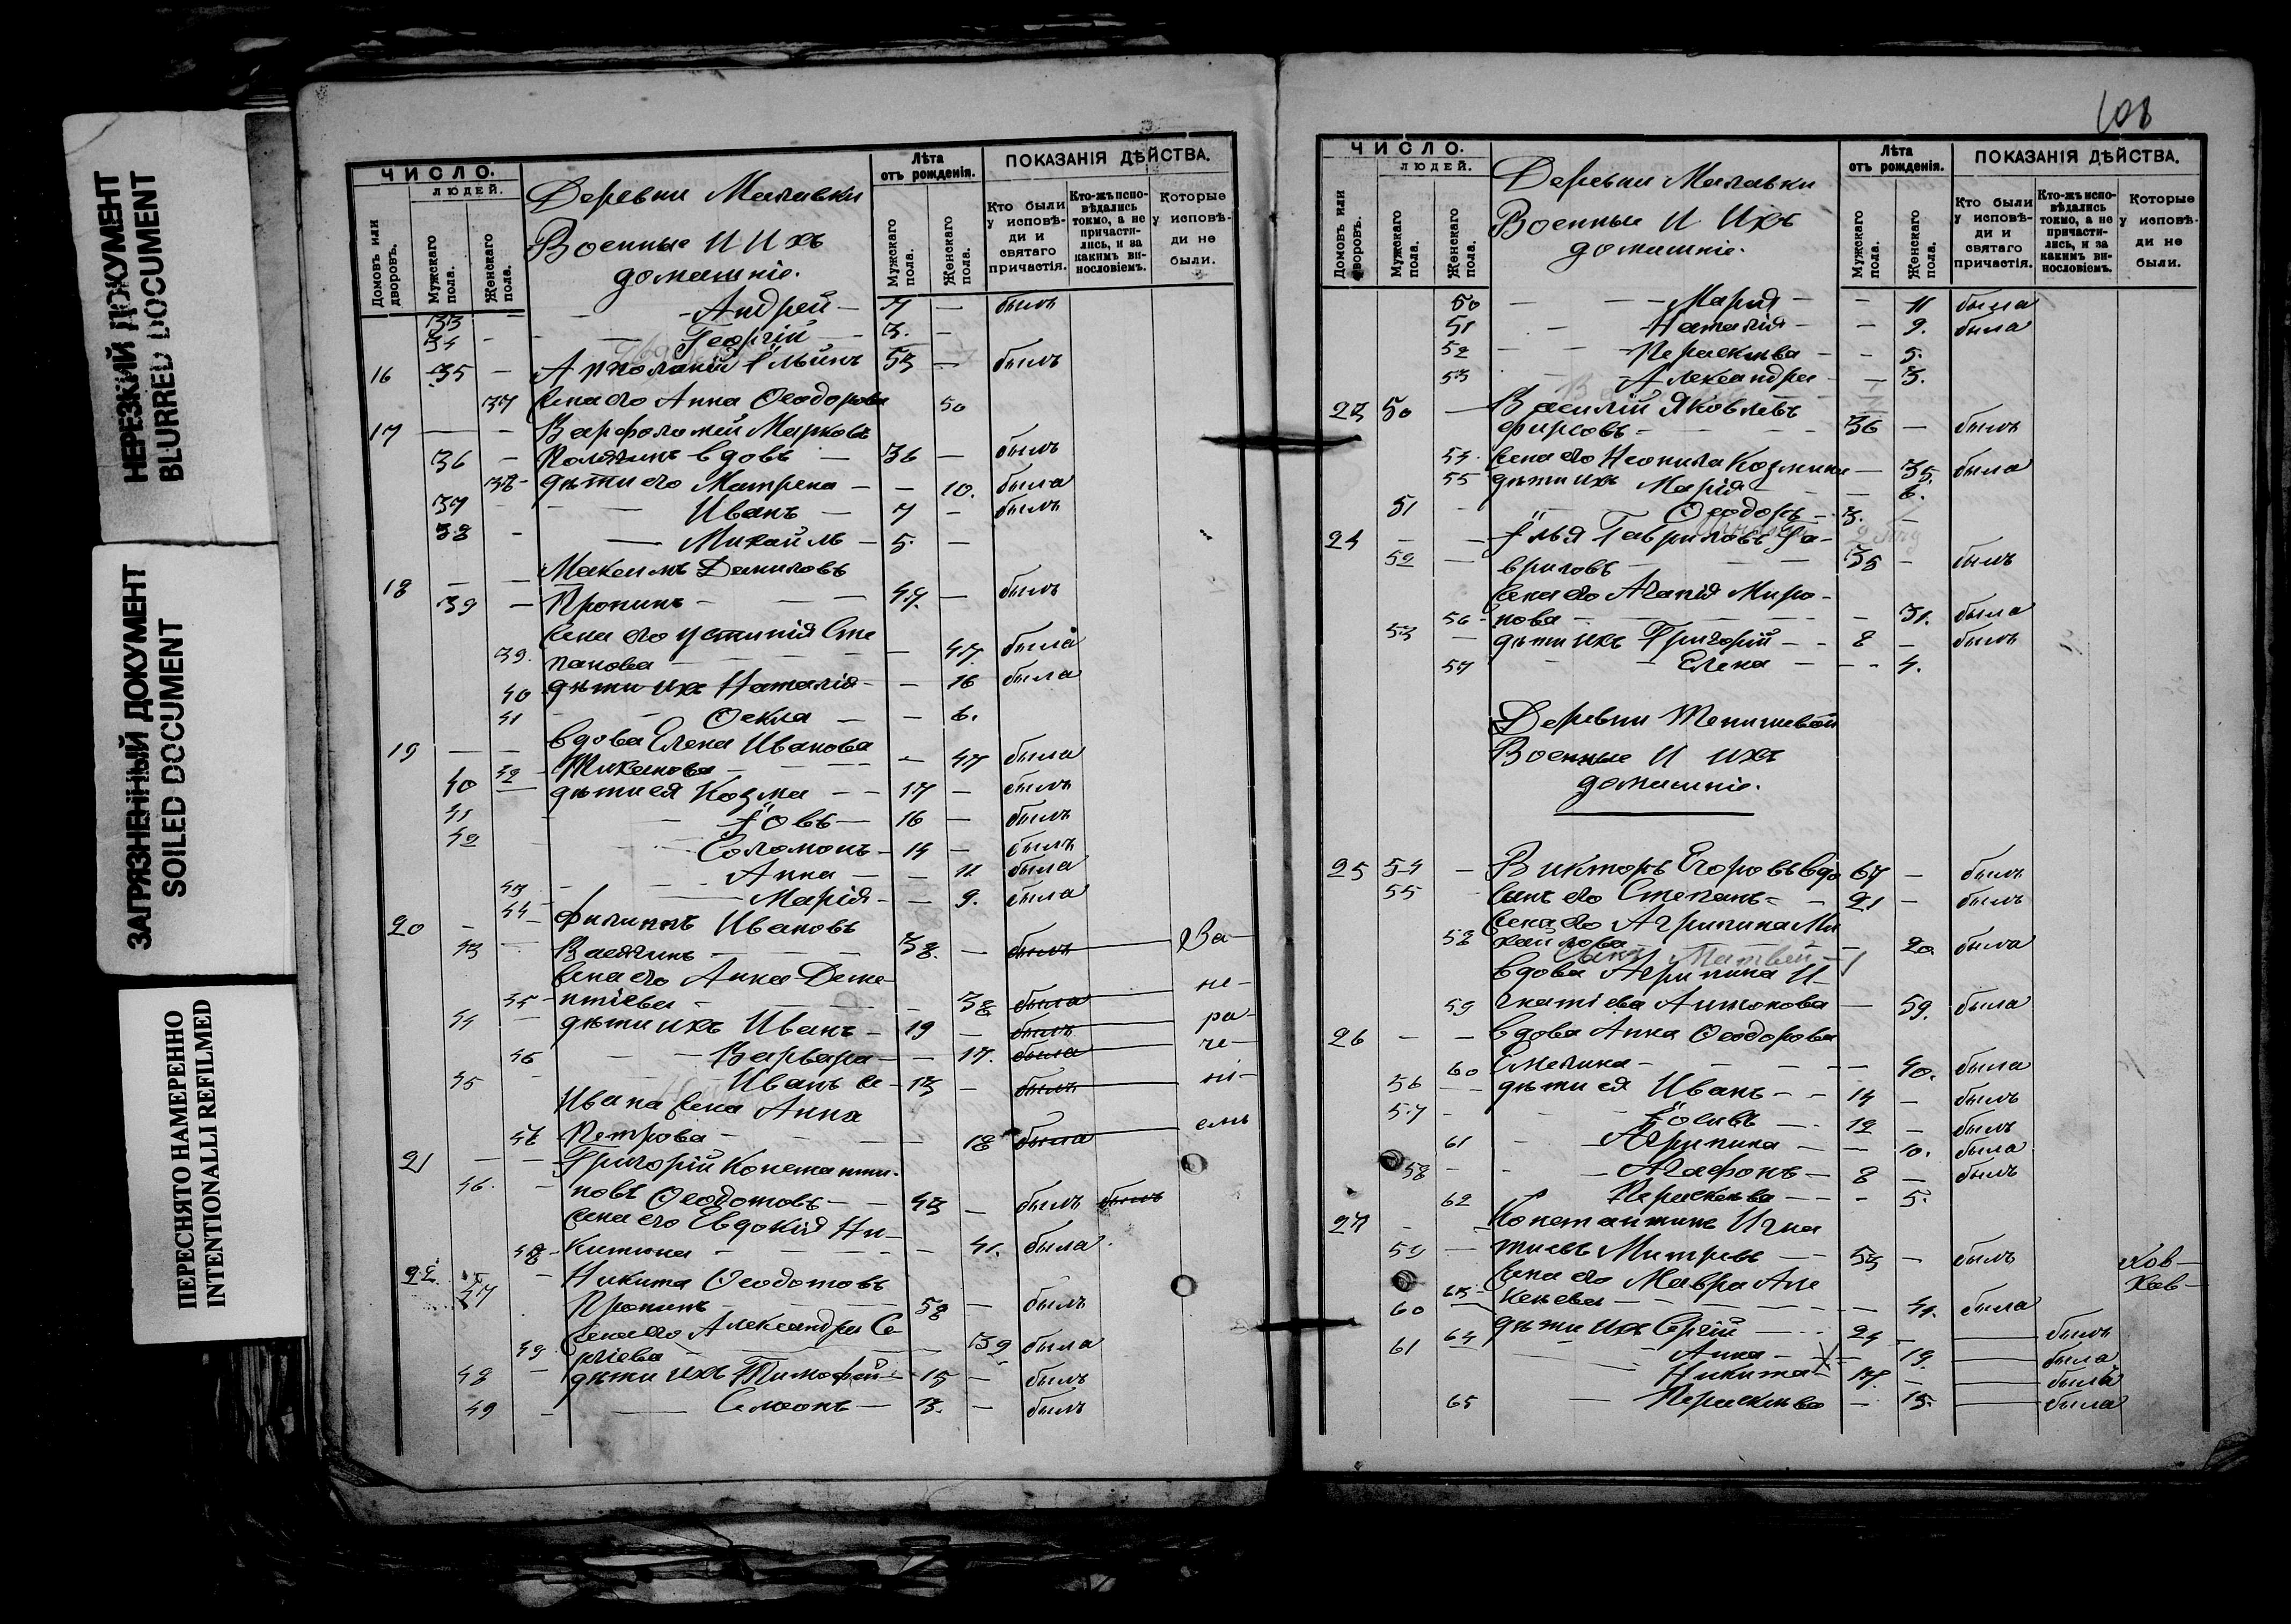 НЕРЕЗКИЙ ДОКУМЕНТ
BLURRED DOCUMENT
ЗАГРЯЗНЕННЫЙ ДОКУМЕНТ
SOILED DOCUMENT
ПЕРЕСНЯТО НАМЕРЕННО
INTENTIONALLI REFILMED
ЧИСЛО.
ЛЮДЕЙ.
Домовъ или дворовъ.
Мужскаго пола.
Женскаго пола.
Деревни Малавки
Военные И Ихъ
домашніе.
Лѣта
отъ рожденія.
Мужскаго пола.
Женскаго пола.
ПОКАЗАНІЯ ДѢЙСТВА.
Кто были у исповѣди и святаго причастія.
Кто-жъ исповѣдались токмо, а не причастились, и за какимъ винословіемъ.
Которые у исповѣди не были.
33 - - Андрей - 7 - былъ
34 - - Георгій - 3. -
16 35 - Апполоній Ильинъ 53 - былъ
37 Жена его Анна Ѳеодорова 50
17 - - Варфоломей Марковъ
36 - вдовъ - 36 - былъ
38 - дѣти его Матрена - - 10. была
37 - - Иванъ - 7 - былъ
38 - - Михаилъ - 5. -
18 - - Максимъ Даниловъ
39 - Пронинъ - 49. - былъ
Жена его Устинія Сте
39. панова - - 47. была
40 дѣти ихъ Наталія - - 16 была
41 - - Ѳекла - - 6.
19 - - вдова Елена Иванова
42 - - 47 была
40 - дѣти ея Козма - - 17 - былъ
41 - Іовъ - 16 - былъ
42 - Соломонъ - 14 - былъ
43 - Анна - - 11 была
44 - Марія - - 9. была
20 - Филиппъ Ивановъ
43 - 38. - былъ За
Жена его Анна Деме-
45 - нтіева - - 38 была не-
44 - дѣти ихъ Иванъ - 19 - былъ ра-
46 - - Варвара - - 17. была че-
45 - Иванъ - 13 - былъ ні-
Ивана Жена Анна
47 - Петрова - - 18 была емъ
21 - - Григорій Константи-
46. - новъ Ѳеодотовъ - - 43 - былъ былъ
Жена его Евдокія Ни-
48 - китина - - 41. была.
22. 47 - Никита Ѳеодотовъ
Пронинъ - 58 - былъ
Жена его Александра Се
49 ргіева - 39 была
48 - дѣти ихъ Тимофей - 15 - былъ
49 - - Семеонъ - 13. - былъ
108
ЧИСЛО.
ЛЮДЕЙ.
Домовъ или дворовъ.
Мужскаго пола.
Женскаго пола.
Деревни Малавки
Военные И Ихъ
домашніе.
Лѣта
отъ рожденія.
Мужскаго пола.
Женскаго пола.
ПОКАЗАНІЯ ДѢЙСТВА.
Кто были у исповѣди и святаго причастія.
Кто-жъ исповѣдались токмо, а не причастились, и за какимъ винословіемъ.
Которые у исповѣди не были.
50 - - Марія - - 11 была
51 - - Наталія - - 9. была
52 - - Параскѣва - - 5.
53 - Александра - - 3.
23 50 - Василій Яковлевъ
Фирсовъ - 36 - былъ
54. Жена его Неонила Козмина - 35. была
55 дѣти ихъ Марія - 6.
51 - - Ѳеодоръ - 3. -
24 - - Илья Гавриловъ Га-
52 - вриловъ - 35 - былъ
Жена его Агапія Миро-
56 - нова - - 31. была
53 - дѣти ихъ Григорій - - 8 - былъ
57 - - Елена - - 4.
Деревни Тенишевой
Военные И ихъ
домашніе.
25 54 - Викторъ Егоровъ вдо 67 - былъ
55 - Сынъ его Степанъ - - 21 - былъ
Жена его Агрипина Ми
58 хайлова - 20 была
Матвей
вдова Агрипина И-
59 гнатіева Антонова - 59. была
26 - - вдова Анна Ѳеодорова
60 - - 40. была
56 - дѣти ея Иванъ - - 14 - былъ
57 - - Іосивъ - 12 - былъ
61 - Агрипина - - 10. была
58 - - Агафонъ - 8 - былъ
62 Параскева - - 5.
27 - - Константинъ Игна
59 - тьевъ Митревъ - - 53 - былъ
Жена его Мавра Але
63 - ксѣева - - 41. была
60 64 дѣти ихъ Сергій - 24 - былъ
61 - Анна - 19. была
Никита - 17. - была
65 - Параскѣва - 15. была